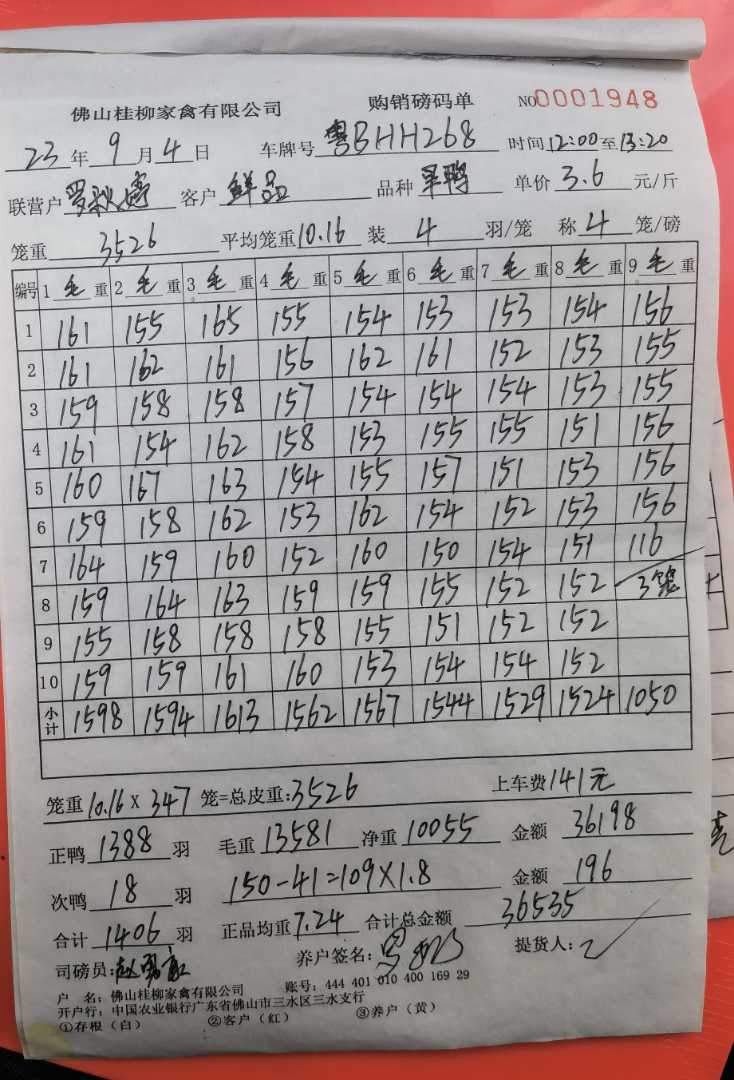 佛山桂柳家禽有限公司 购销磅码单 NO0001948
23年9月4日 车牌号粤BHH268 时间12:00至13:20
联营户罗秋 客户鲜品 品种 鸭 单价3.6元/斤
笼重3526 平均笼重10.16 装4羽/笼 称4笼/磅
编号 1毛重 2毛重 3毛重 4毛重 5毛重 6毛重 7毛重 8毛重 9毛重
1 161 155 165 155 154 153 153 154 156
2 161 162 161 156 162 161 152 153 155
3 159 158 158 157 154 154 154 153 155
4 161 154 162 158 153 155 155 151 156
5 160 167 163 154 155 157 151 153 156
6 159 158 162 153 162 154 152 153 156
7 164 159 160 152 160 150 154 151 116
8 159 164 163 159 159 155 152 152 3笼
9 155 158 158 158 155 151 152 152
10 159 159 161 160 153 154 154 152
小计 1598 1594 1613 1562 1567 1544 1529 1524 1050
笼重10.16×347笼=总皮重:3526 上车费141元
正鸭1388羽 毛重13581 净重10055 金额36198
次鸭18羽 150-41=109×1.8 金额196
合计1406羽 正品均重7.24 合计总金额36535
司磅员:赵 养户签名: 提货人:
户 名:佛山桂柳家禽有限公司 账号:444 401 010 400 169 29
开户行:中国农业银行广东省佛山市三水区三水支行
①存根(白) ②客户(红) ③养户(黄)